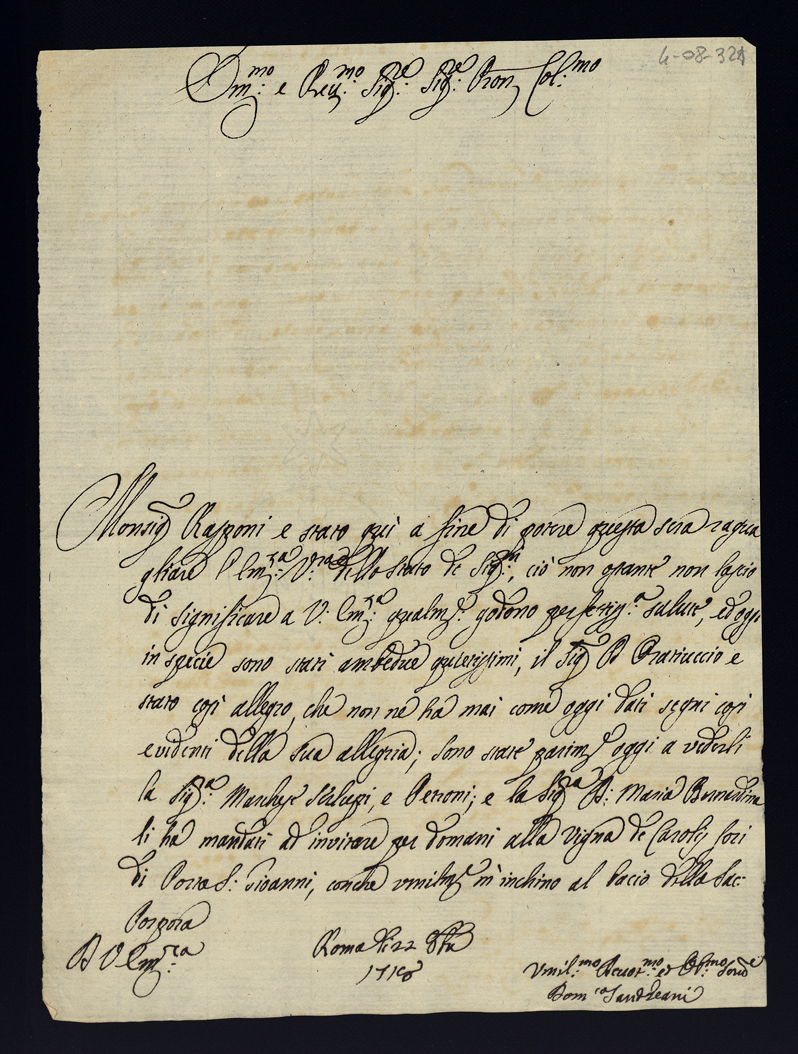 4-08-321
Em:mo e Rev:mo Sig:re Sig:re Pron Col:mo
Monsig Rasponi e stato quì a fine di potere questa sera ragua
gliare l'Em:za V:ra dello stato de Sig:ri, ciò non ostante non lascio
di significare a V: Em:za qualm:te godono perfettiss:a salute, ed oggi
in specie sono stati ambedue quietissimi, il Sig D
stato così allegro, che non ne ha mai come oggi dati segni così
evidenti della sua allegria; sono state parim:te oggi a vederli
la Sig:ra Marchese e Petroni; e la Sig:ra D: Maria Bernardina
li ha mandati ad invitare per domani alla Vigna de Carolis fori
di Porta S: Gioanni, con che umilm:te m'inchino al bacio della Sac:
Porpora
D V Em:za
Roma li 22 8bre
1718
Umil:mo Devot:mo et Obl:mo Serv:e
Dom:co Santreani